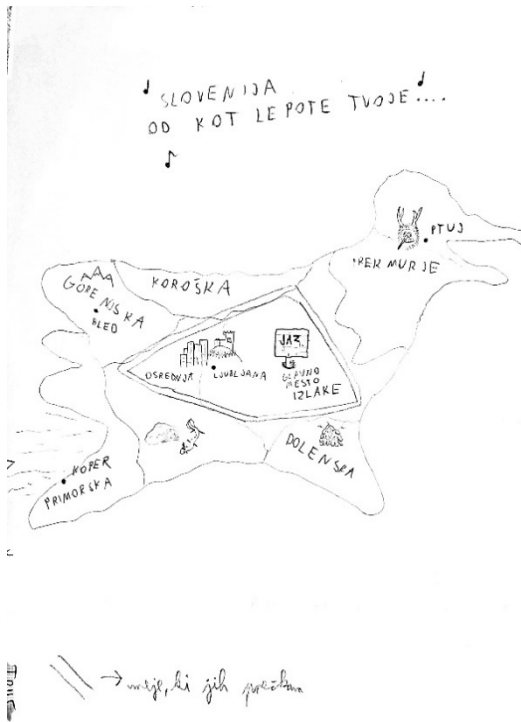 SLOVENIJA
OD KOT LEPOTE TVOJE....
PTUJ
PREKMURJE
KOROŠKA
GORENJSKA
BLED
JAZ
OSREDNJA
LJUBLJANA
GLAVNO
MESTO
IZLAKE
DOLENSKA
KOPER
PRIMORSKA
→ meje, ki jih